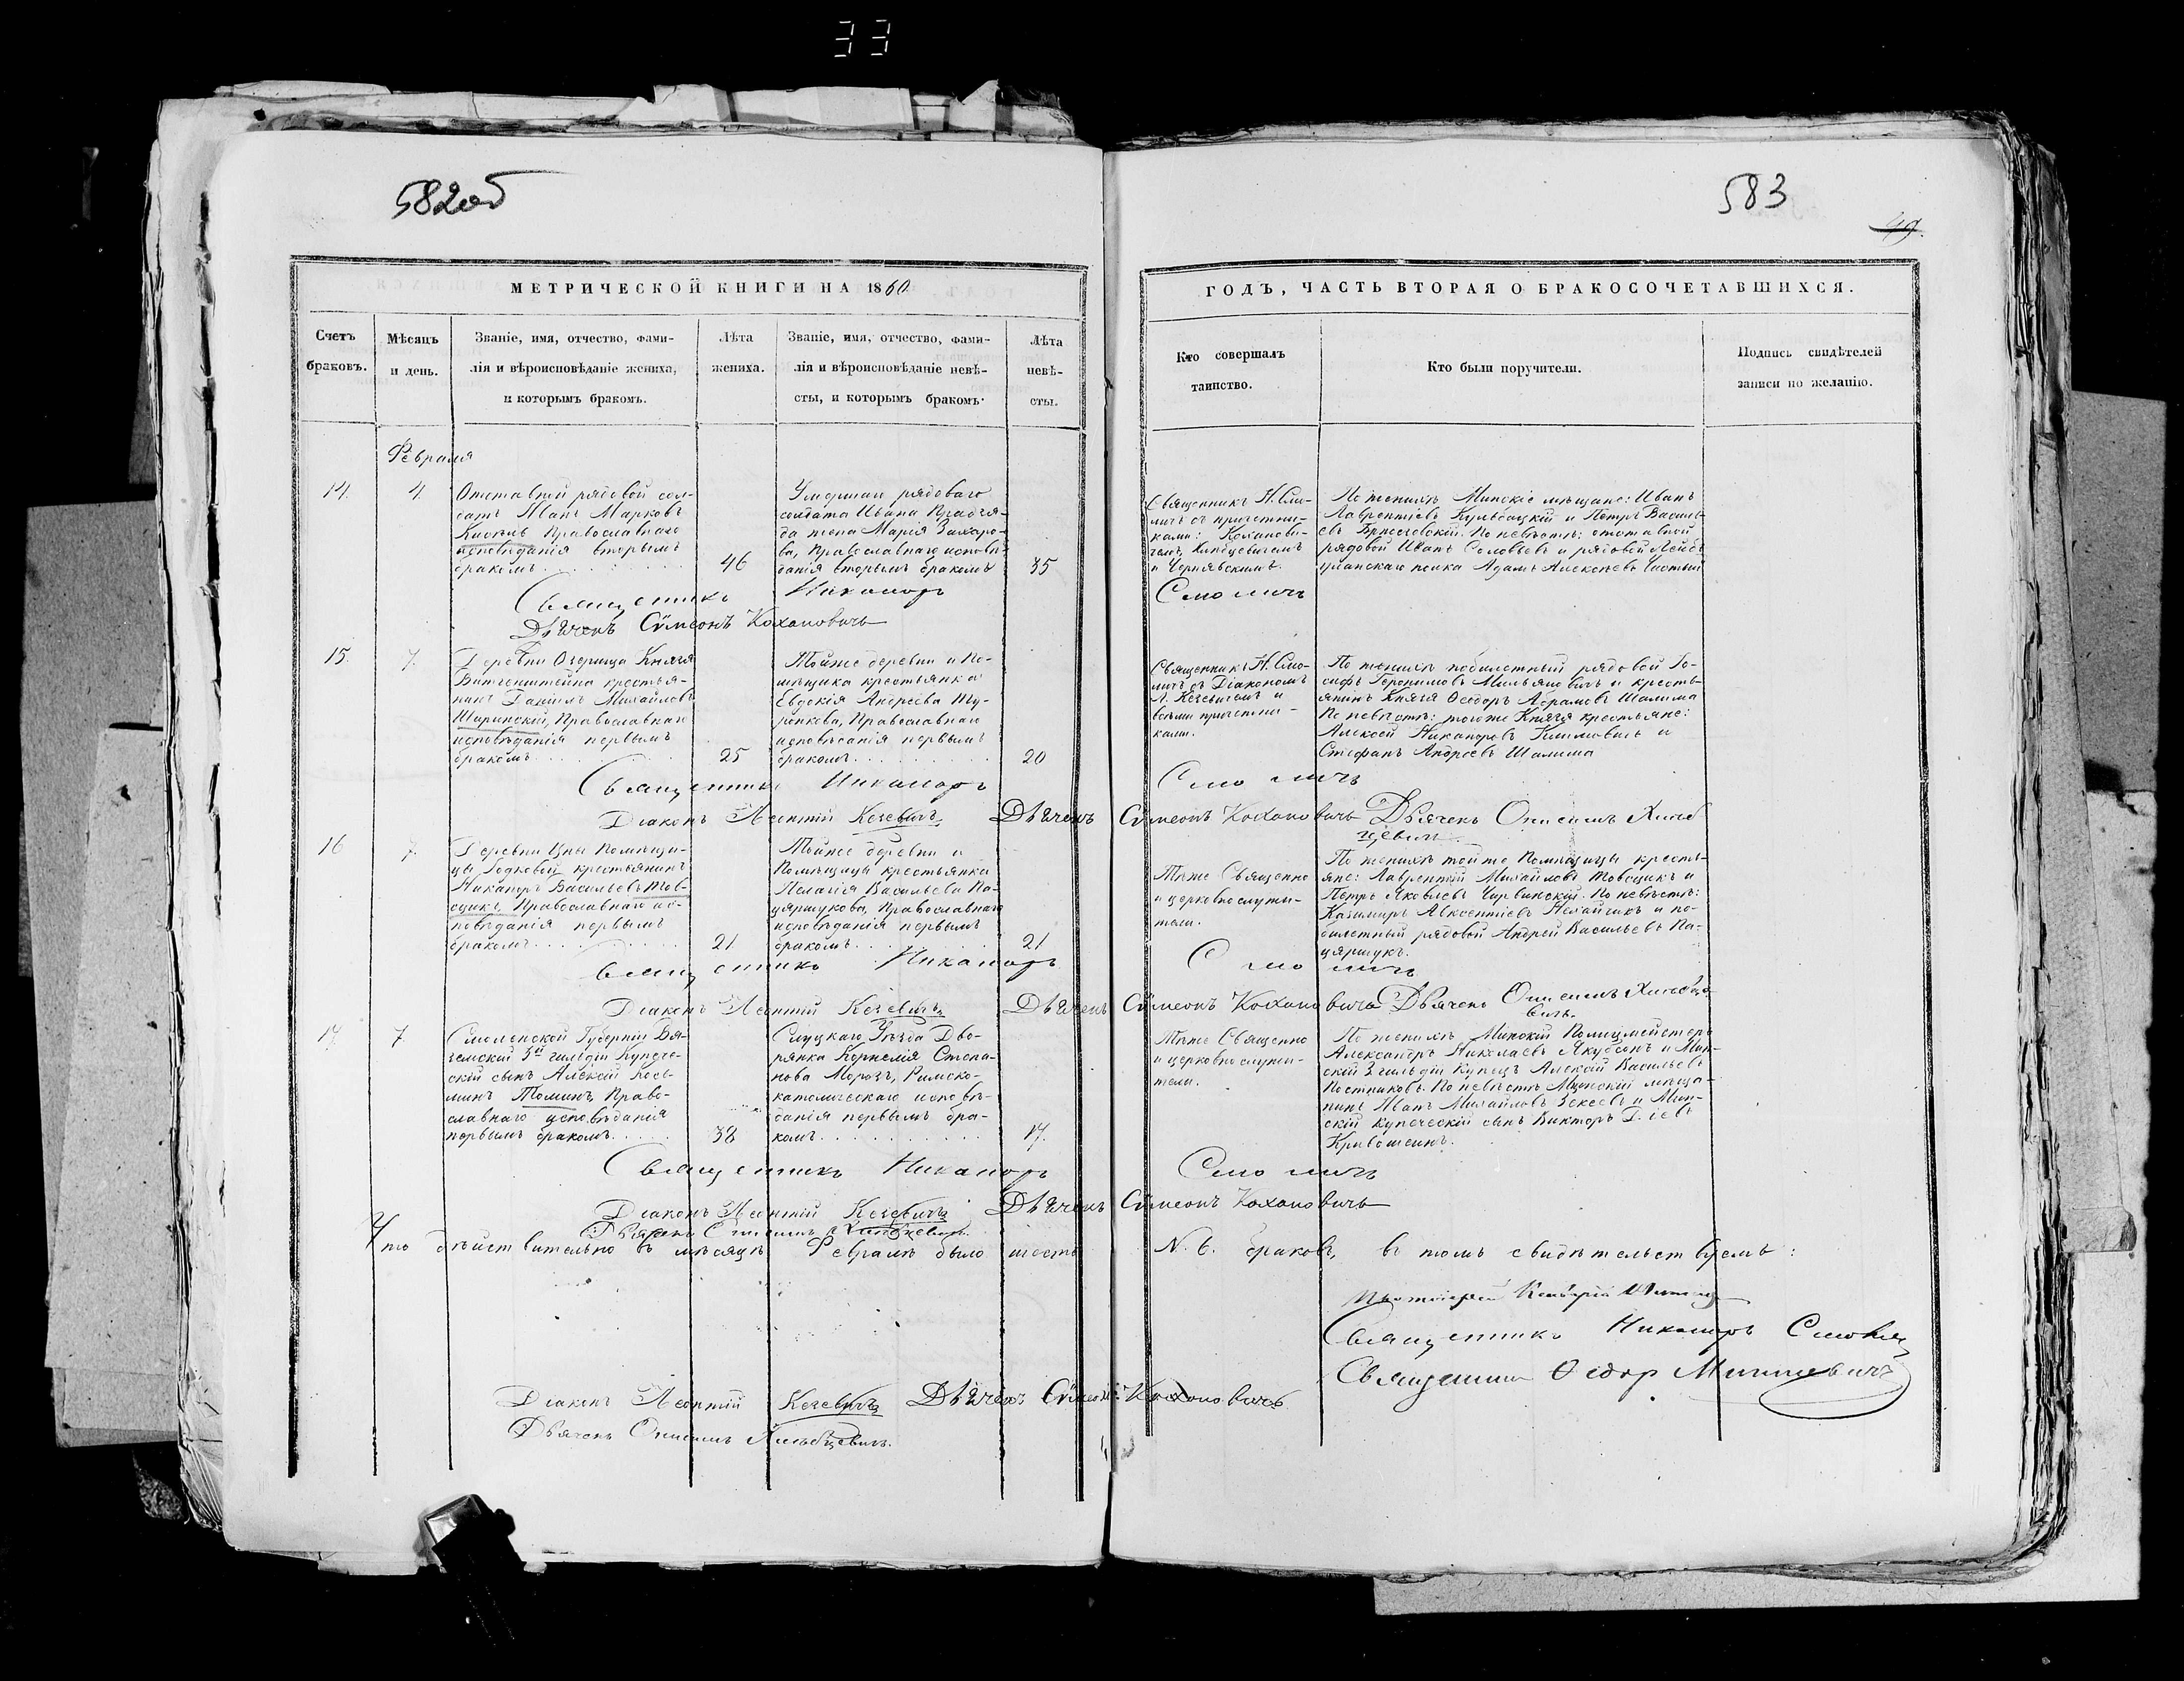 33
582об
583
49.
МЕТРИЧЕСКОЙ КНИГИ НА 1860
ГОДЪ, ЧАСТЬ ВТОРАЯ О БРАКОСОЧЕТАВШИХСЯ.
Счетъ
браковъ.
Мѣсяцъ
и день.
Званіе, имя, отчество, фами-
лія и вѣроисповѣданіе жениха,
и которымъ бракомъ.
Лѣта
жениха.
Званіе, имя, отчество, фами-
лія и вѣроисповѣданіе невѣ-
сты, и которымъ бракомъ.
Лѣта
невѣ-
сты.
Кто совершалъ
таинство.
Кто были поручители.
Подпись свидѣтелей
записи по желанію.
Февраля
14.
4.
Отставной рядовой сол-
датъ Иванъ Марковъ
Православнаго
исповѣданія вторымъ
бракомъ
46
Умершаго рядоваго
солдата Ивана
жена Марія Захаро-
ва, Православнаго исповѣ-
данія вторымъ бракомъ
35
Священникъ Н. Смо-
личъ съ причетни-
ками: Коханови-
чемъ, Хлѣбцевичемъ
и Чернявскимъ.
По женихѣ Минскіе мѣщане: Иванъ
Лаврентіевъ и Петръ Василь-
евъ По невѣстѣ: отставной
рядовой Иванъ Соловьевъ и рядовой Лейбъ
уланскаго полка Адамъ Алексѣевъ
Священникъ Никаноръ Смоличъ
Дьячекъ Сѵмеонъ Кохановичъ
15.
7.
Деревни Озерища Князя
Витгенштейна крестья-
нинъ Даніилъ Михайловъ
Шаринскій, Православнаго
исповѣданія первымъ
бракомъ
25
Тойже деревни и По-
мѣщика крестьянка
Евдокія Андреева Ту-
ронкова, Православнаго
исповѣданія первымъ
бракомъ
20
Священникъ Н. Смо-
личъ съ Діакономъ
Л. Кечевичемъ и
всѣми причетни-
ками.
По женихѣ побилетный рядовой Іо-
сифъ Іеронимовъ и кресть-
янинъ Князя Ѳеодоръ Абрамовъ Шалима
По невѣстѣ: тогоже Князя крестьяне:
Алексѣй Никаноровъ Климовичъ и
Стефанъ Андреевъ Шалима
Священникъ Никаноръ Смоличъ
Діаконъ Леонтій Кечевичъ Дьячекъ Сѵмеонъ Кохановичъ Дьячекъ Онисимъ Хлѣб
цевичъ.
16
7.
Деревни Цны Помѣщи-
цы крестьянинъ
Никаноръ Васильевъ Тов-
сцикъ, Православнаго ис-
повѣданія первымъ
бракомъ
21
Тойже деревни и
Помѣщицы крестьянка
Пелагія Васильева Па-
цяршукова, Православнаго
исповѣданія первымъ
бракомъ
21
Тѣже Священно
и церковнослужи-
тели.
По женихѣ тойже Помѣщицы кресть-
яне: Лаврентій Михайловъ Товсцикъ и
Петръ Яковлевъ Чирвинскій. По невѣстѣ:
Казимиръ Авксентіевъ и по-
билетный рядовой Андрей Васильевъ Па-
цяршукъ.
Священникъ Никаноръ Смоличъ
Діаконъ Леонтій Кечевичъ Дьячекъ Сѵмеонъ Кохановичъ Дьячекъ Онисимъ Хлѣбце
вичъ.
17
7
Смоленской Губерніи Вя-
земскій 3й гильдіи Купече-
скій сынъ Алексѣй Кось-
минъ Томинъ, Право-
славнаго исповѣданія
первымъ бракомъ
38
Слуцкаго Уѣзда Дво-
рянка Корнелія Степа-
нова Морозъ, Римско-
католическаго исповѣ-
данія первымъ бра-
комъ
17.
Тѣже Священно
и церковнослужи-
тели.
По женихѣ Минскій Полицмейстеръ
Александръ Николаевъ Якубсонъ и Мин-
скій 3 гильдіи Купецъ Алексѣй Васильевъ
Постниковъ. По невѣстѣ Мценскій мѣща-
нинъ Иванъ Михайловъ и Мин-
скій купеческій сынъ Викторъ
Кривошеинъ.
Священникъ Никаноръ Смоличъ
Діаконъ Леонтій Кечевичъ Дьячекъ Сѵмеонъ Кохановичъ
Дьячекъ Онисимъ Хлѣбцевичъ.
Что дѣйствительно въ мѣсяцѣ Февралѣ было шесть N. 6. браковъ, въ томъ свидѣтельствуемъ:
Протоіерей
Священникъ Никаноръ Смоличъ
Священникъ Ѳедоръ Мицкевичъ
Діаконъ Леонтій Кечевичъ Дьячекъ Сѵмеонъ Кохановичъ
Дьячекъ Онисимъ Хлѣбцевичъ.